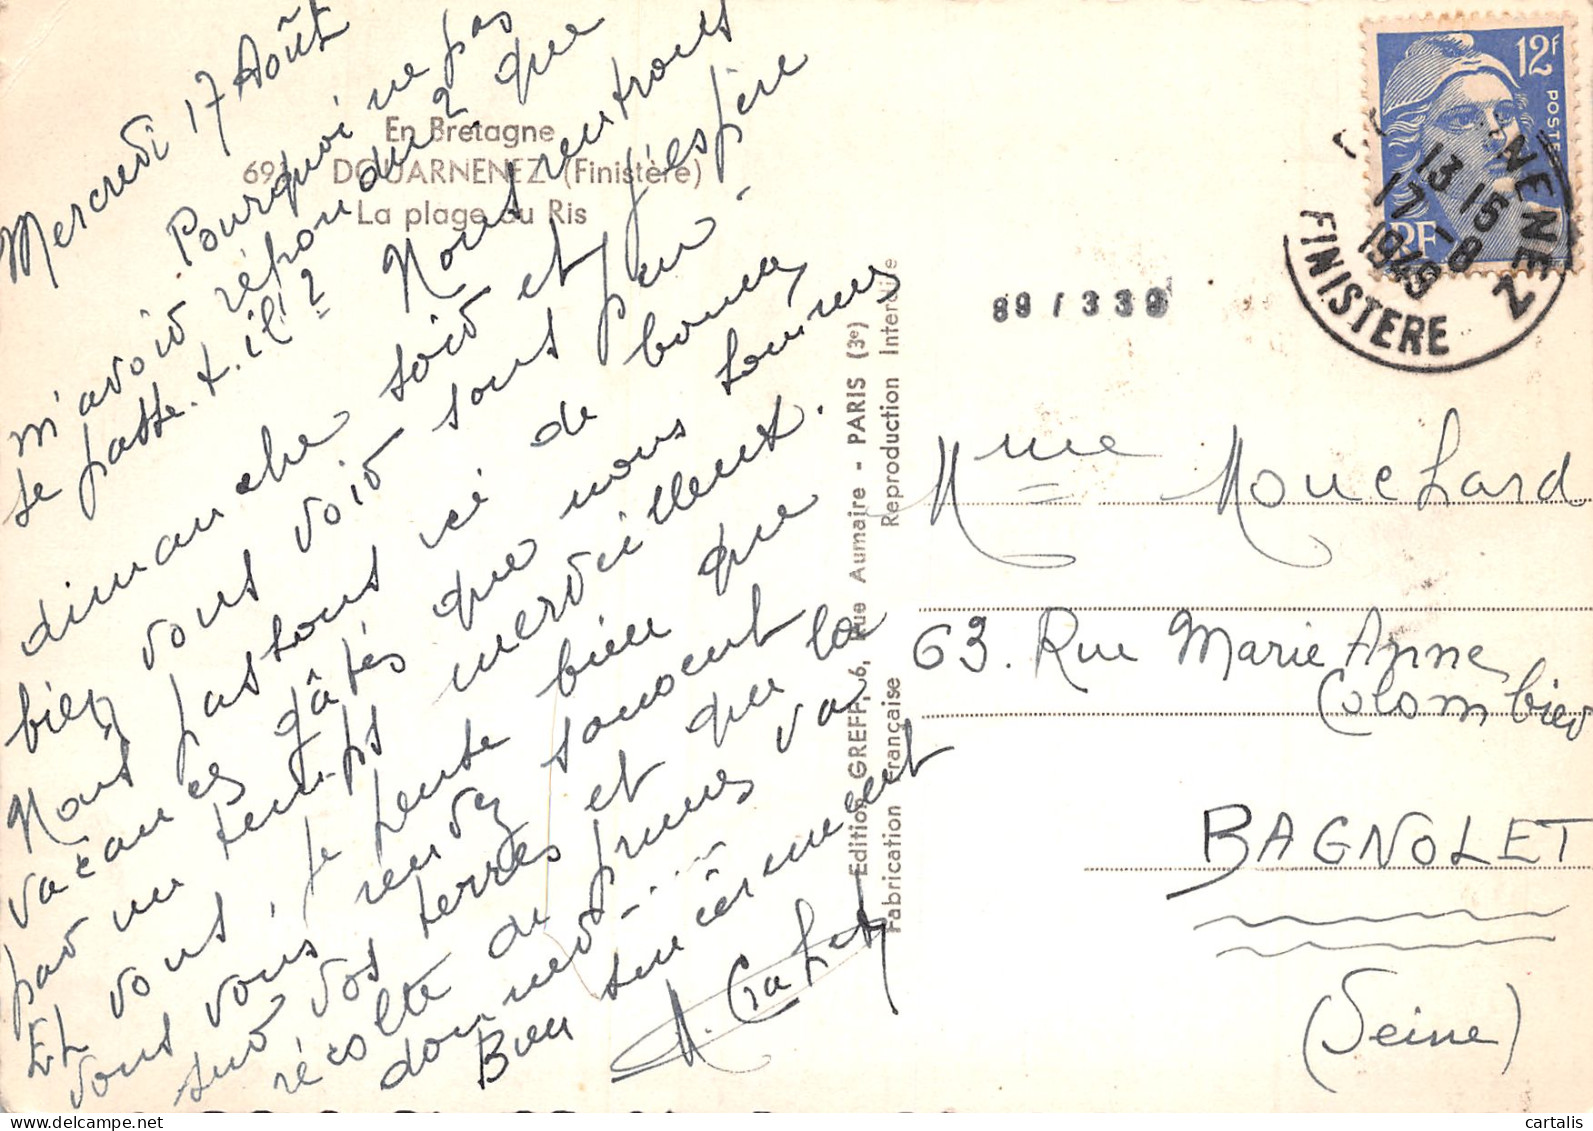 Mercredi 17 Août
Pourquoi ne pas
m'avoir répondu ? que
se passe-t-il ? Nous rentrons
dimanche soir et j'espère
bien vous voir sous peu.
Nous passons ici de bonnes
vacances gâtés que nous sommes
par un temps merveilleux.
Et vous, je pense bien que
vous vous rendez souvent
sur vos terres et que la
récolte de prunes va
donner.....
Bien sincèrement
En Bretagne
DOUARNENEZ (Finistère)
La plage du Ris
Edition GREFF, 6, Rue Aumaire - PARIS (3e)
Fabrication Française Reproduction Interdite
89 / 339
12F
POSTES
RF
NENEZ
13 15
17 -8
1949
FINISTERE
Mme Mouchard
63. Rue Marie Anne
Colombier
BAGNOLET
(Seine)
cartalis
www.delcampe.net